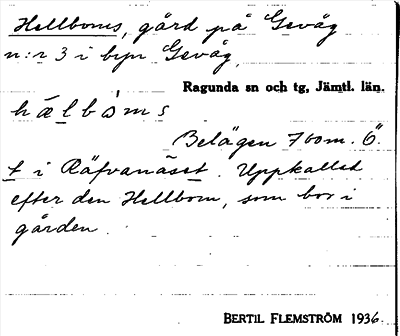 Hellboms, gård på Gevåg
n:r 3 i byn Gevåg
Ragunda sn och tg, Jämtl. län.
hælbòms
Belägen 700m. Ö.
t i Räfvanäset. Uppkallad
efter den Hellbom, som bor i
gården.
BERTIL FLEMSTRÖM 1936.